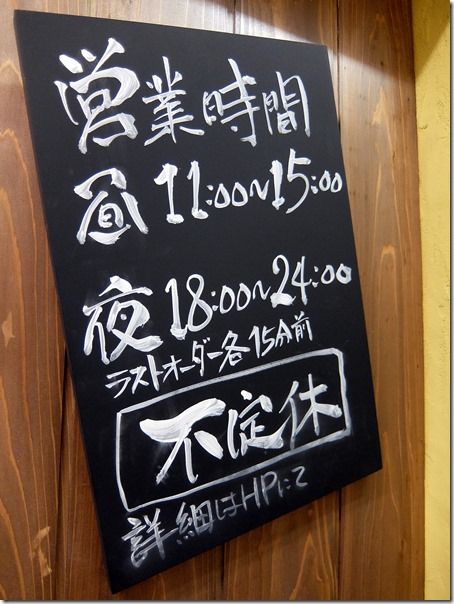 営業時間
昼 11:00~15:00
夜 18:00~24:00
ラストオーダー各15分前
不定休
詳細はHPにて